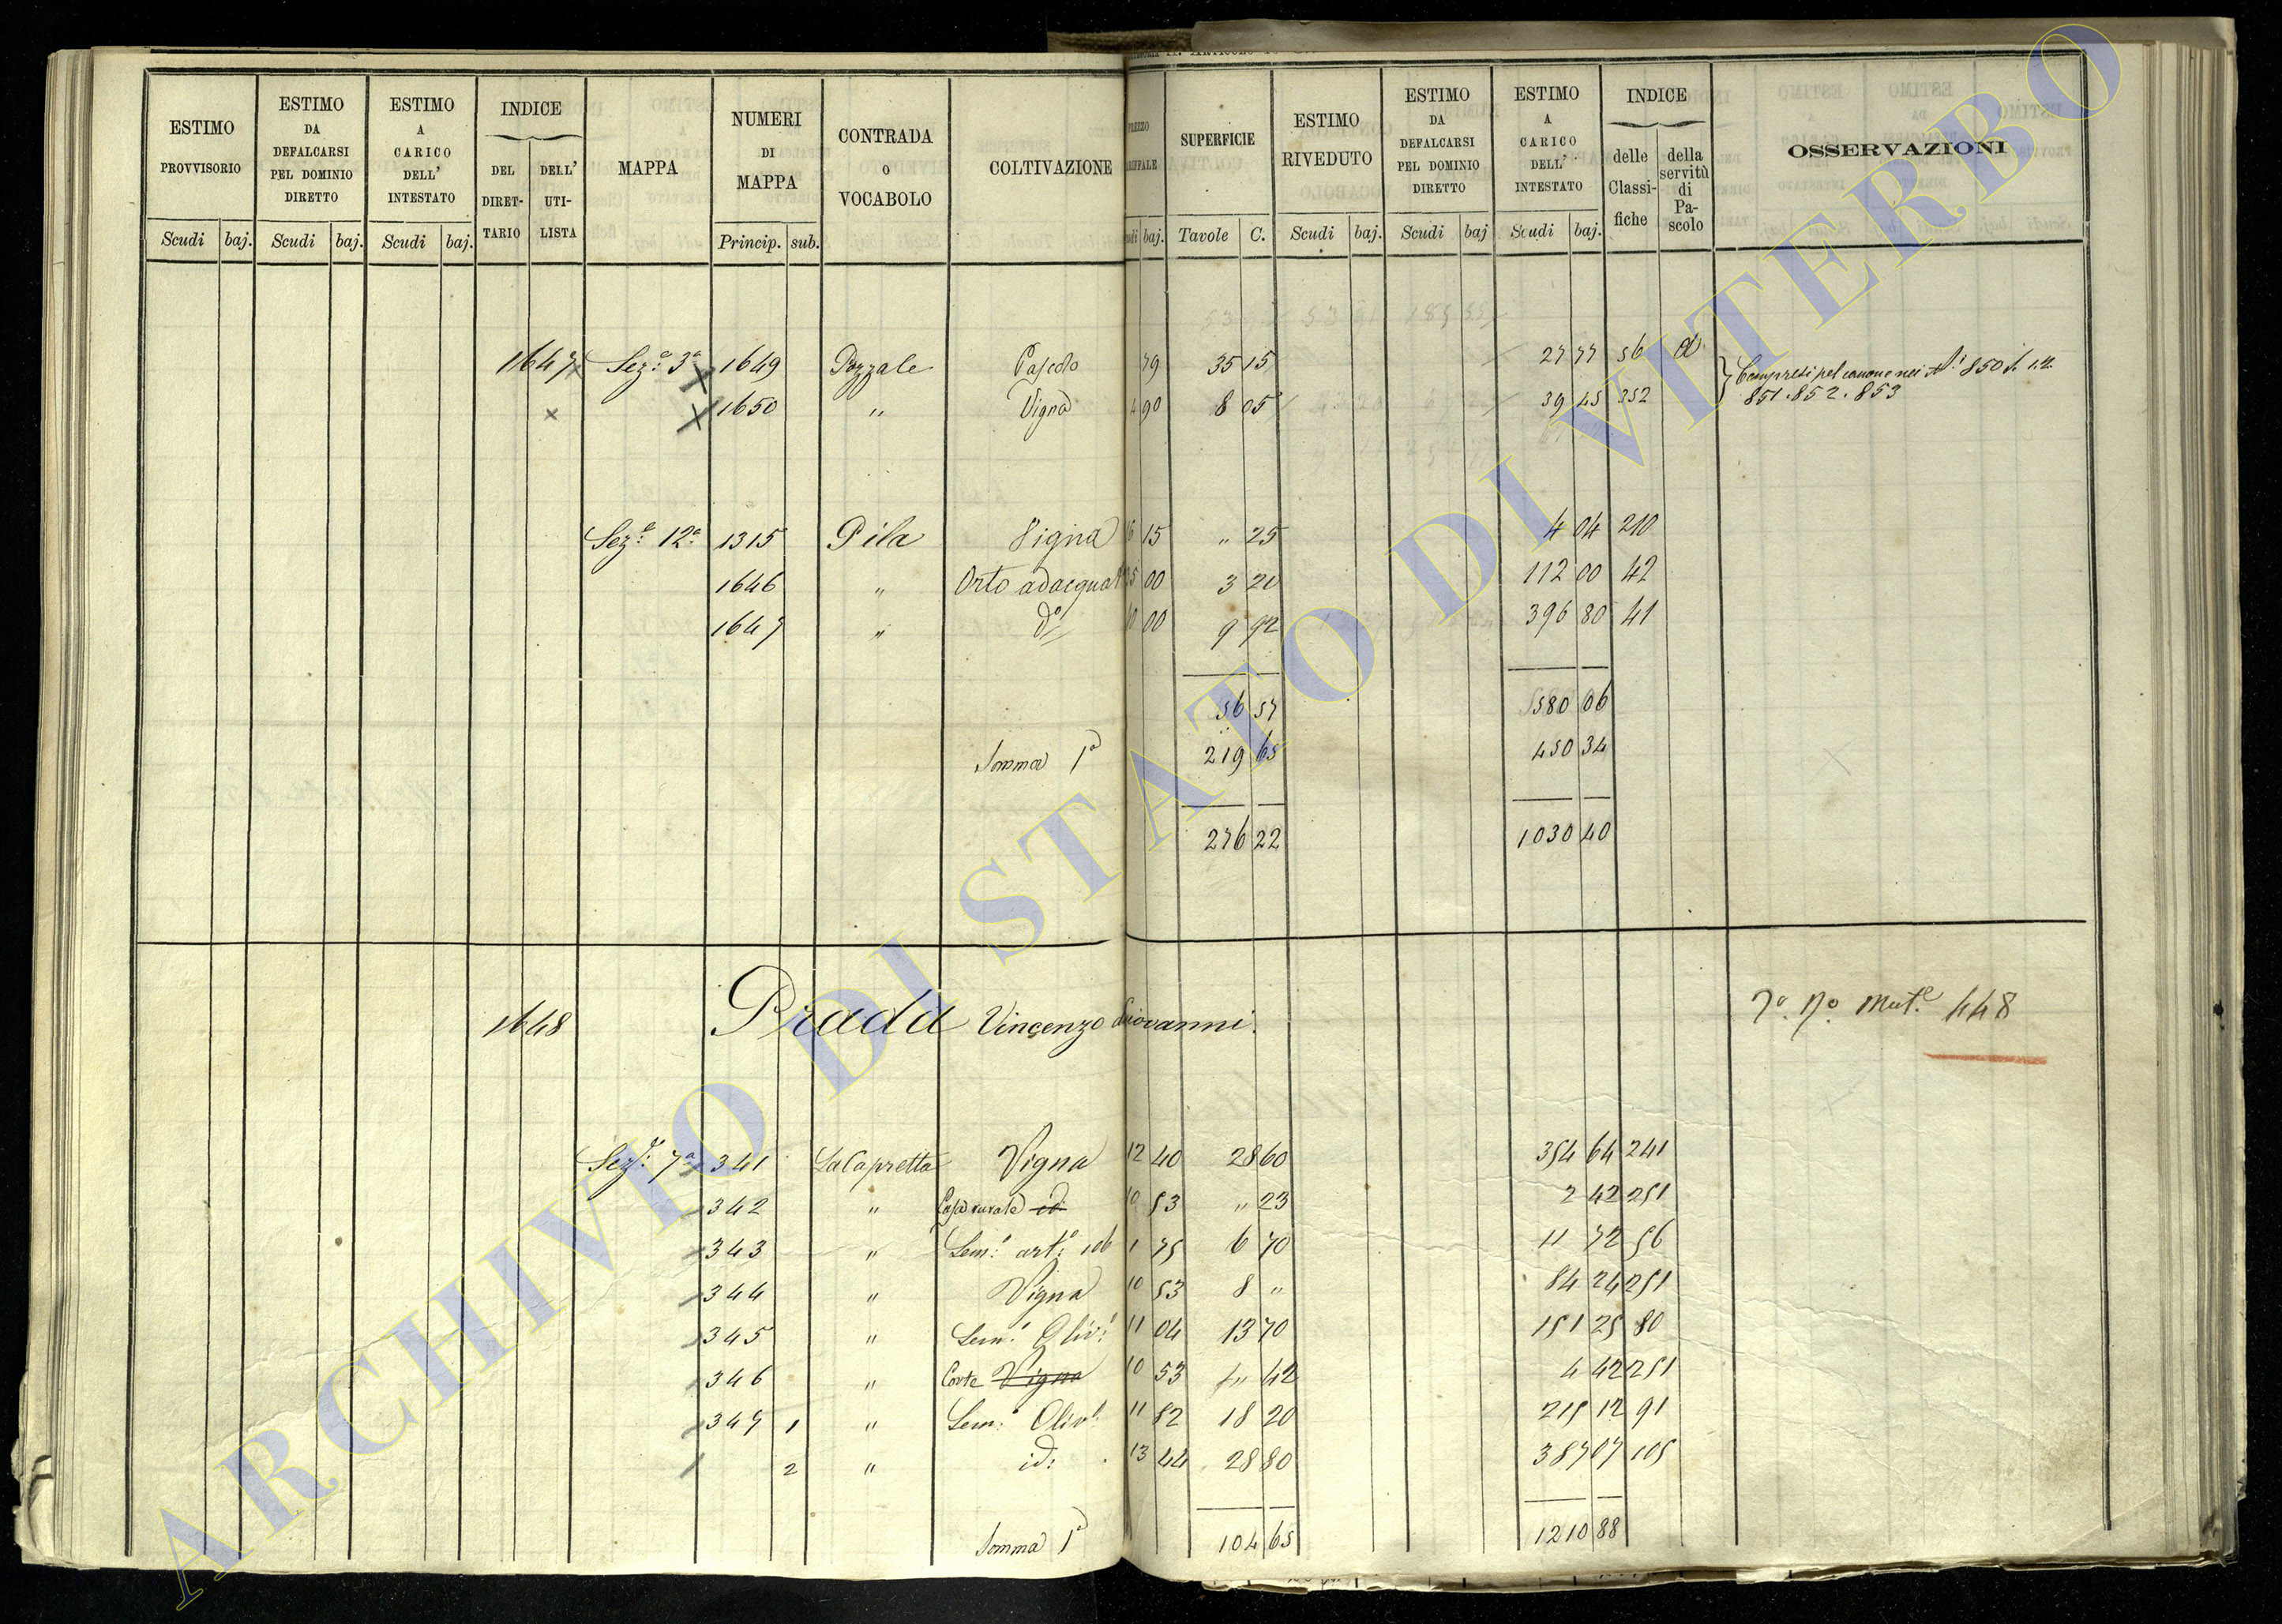 ESTIMO PROVVISORIO | ESTIMO DA DEFALCARSI PEL DOMINIO DIRETTO | ESTIMO A CARICO DELL' INTESTATO | INDICE DEL DIRETTARIO | DELL' UTILISTA | MAPPA | NUMERI DI MAPPA | CONTRADA o VOCABOLO | COLTIVAZIONE | SUPERFICIE | ESTIMO RIVEDUTO | ESTIMO DA DEFALCARSI PEL DOMINIO DIRETTO | ESTIMO A CARICO DELL' INTESTATO | INDICE delle Classifiche | della servitù di Pascolo | OSSERVAZIONI
Scudi baj. Scudi baj. Scudi baj. Princip. sub. baj. Tavole C. Scudi baj. Scudi baj Scudi baj.
1647 Sez.e 3a 1649 Pozzale Pascolo 79 35 15 27 77 56 d
Compresi pel canone nei Ni 850
1650 " Vigna 90 8 05 39 45 352
851.852.853
Sez.e 12a 1315 Pila Vigna 15 " 25 4 04 210
1646 " Orto adacquat 00 3 20 112 00 42
1647 " do 00 9 92 396 80 41
56 57 580 06
Somma 1a 219 65 450 34
276 22 1030 40
1648 Prada Vincenzo Giovanni. Mut.e 448
Sez.e 7a 341 La Capretta Vigna 12 40 28 60 354 64 241
342 " Casa rurale id 10 53 " 23 2 42 251
343 " Sem.o art.o 1 75 6 70 11 72 56
344 " Vigna 10 53 8 " 84 24 251
345 " Sem.o Oliv.o 11 04 13 70 151 25 80
346 " Corte Vigna 10 53 " 42 4 42 251
347 1 " Sem.o Oliv.o 11 82 18 20 215 12 91
2 " id: 13 44 28 80 387 07 105
Somma 1a 104 65 1210 88
ARCHIVIO DI STATO DI VITERBO